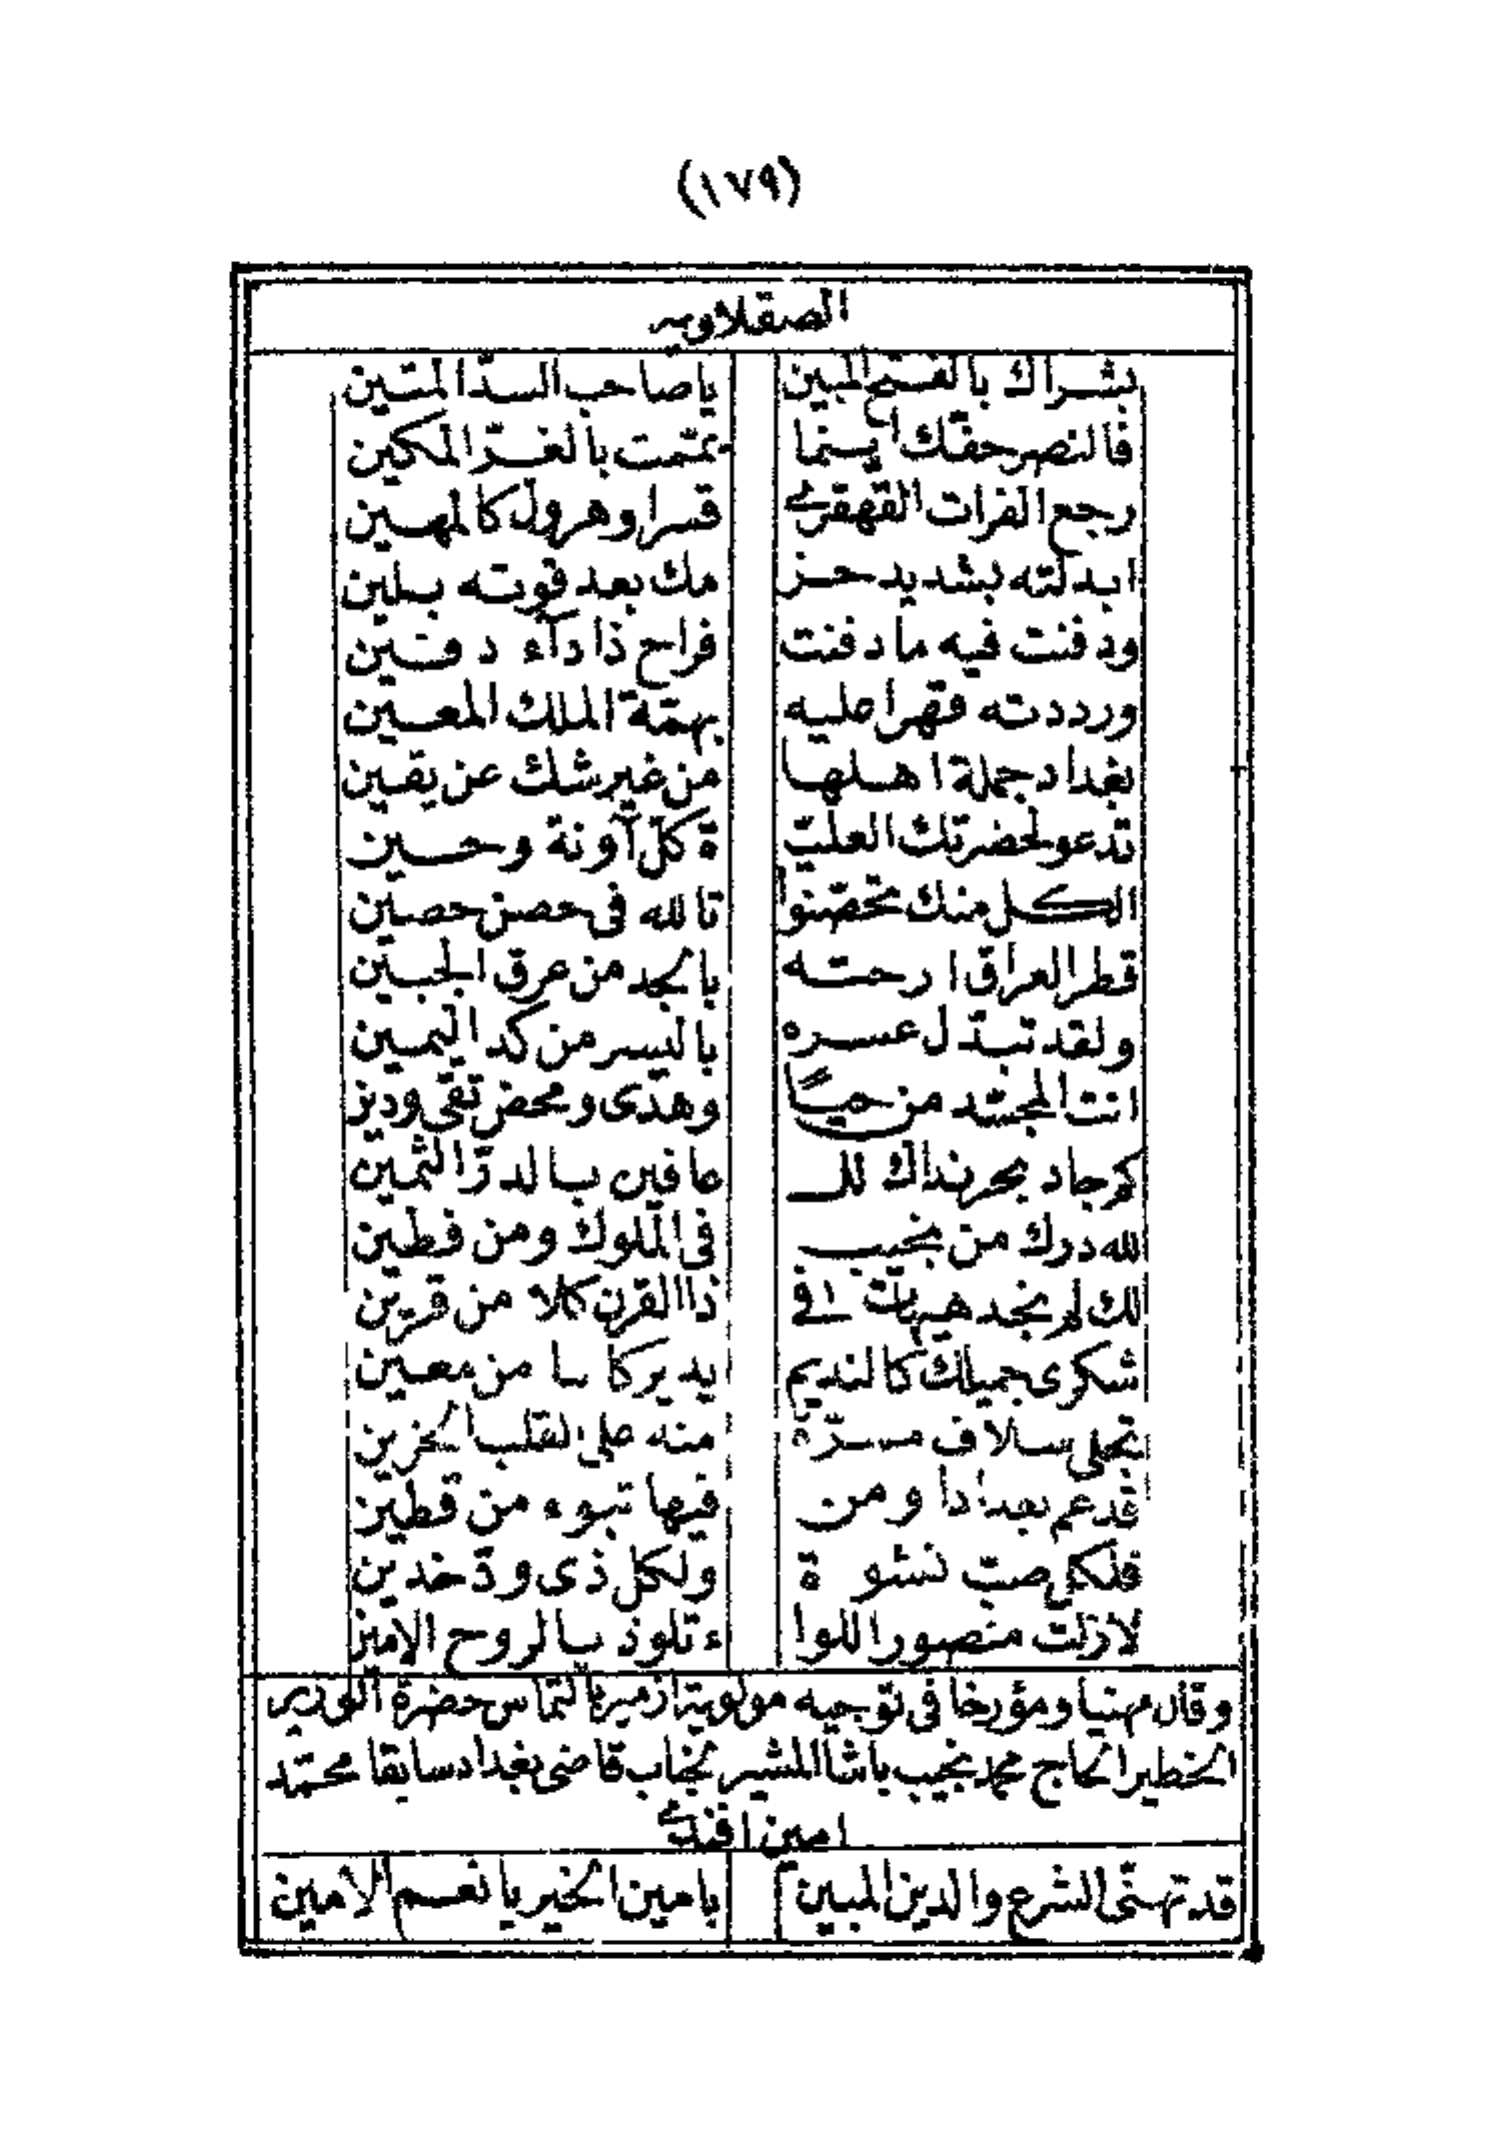 (١٧٩)
الصقلاويه
بشراك بالفتح المبين يا صاحب السدّ المتين
فالنصر حفّك اينما يمّمت بالغرّ المكين
رجع الفرات القهقرى قسرا وهرول كالمهين
ابدلته بشديد حز مك بعد قوته بلين
ودفنت فيه ما دفنت فراح ذا دآء دفين
ورددته قهرا عليه بهمّة الملك المعين
بغداد جملة اهلها من غير شك عن يقين
تدعو لحضرتك العليّ ة كلّ آونة وحين
الكل منك تحصّنوا تالله فى حصن حصين
قطر العراق ارحته بالجد من عرق الجبين
ولقد تبدّل عسره باليسر من كد اليمين
انت المجدد من حيـاً وهدى ومحض تقى ودين
كم جاد بحر نداك للـ عافين بالدرّ الثمين
لله درك من نجيب فى الملوك ومن فطين
لك لم نجد هيهات فى ذا القرن كلا من قرين
شكرى جميلك كالنديم يدير كاسا من معين
تجلى سلاف مسرّة منه على القلب الحزين
قد عم بغدادا ومن فيها تبوء من قطين
فلكل صبّ نشوة ولكل ذى ودّ خدين
لازلت منصور اللوا ء تلوذ بالروح الامين
وقال مهنيا ومؤرخا فى توجيه مولوية ازمير بالتماس حضرة الوزير
الخطير الحاج محمد نجيب باشا المشير لجناب قاضى بغداد سابقا محمّد
امين افندى
قد تهنّى الشرع والدين المبين بامين الخير يا نعم الامين